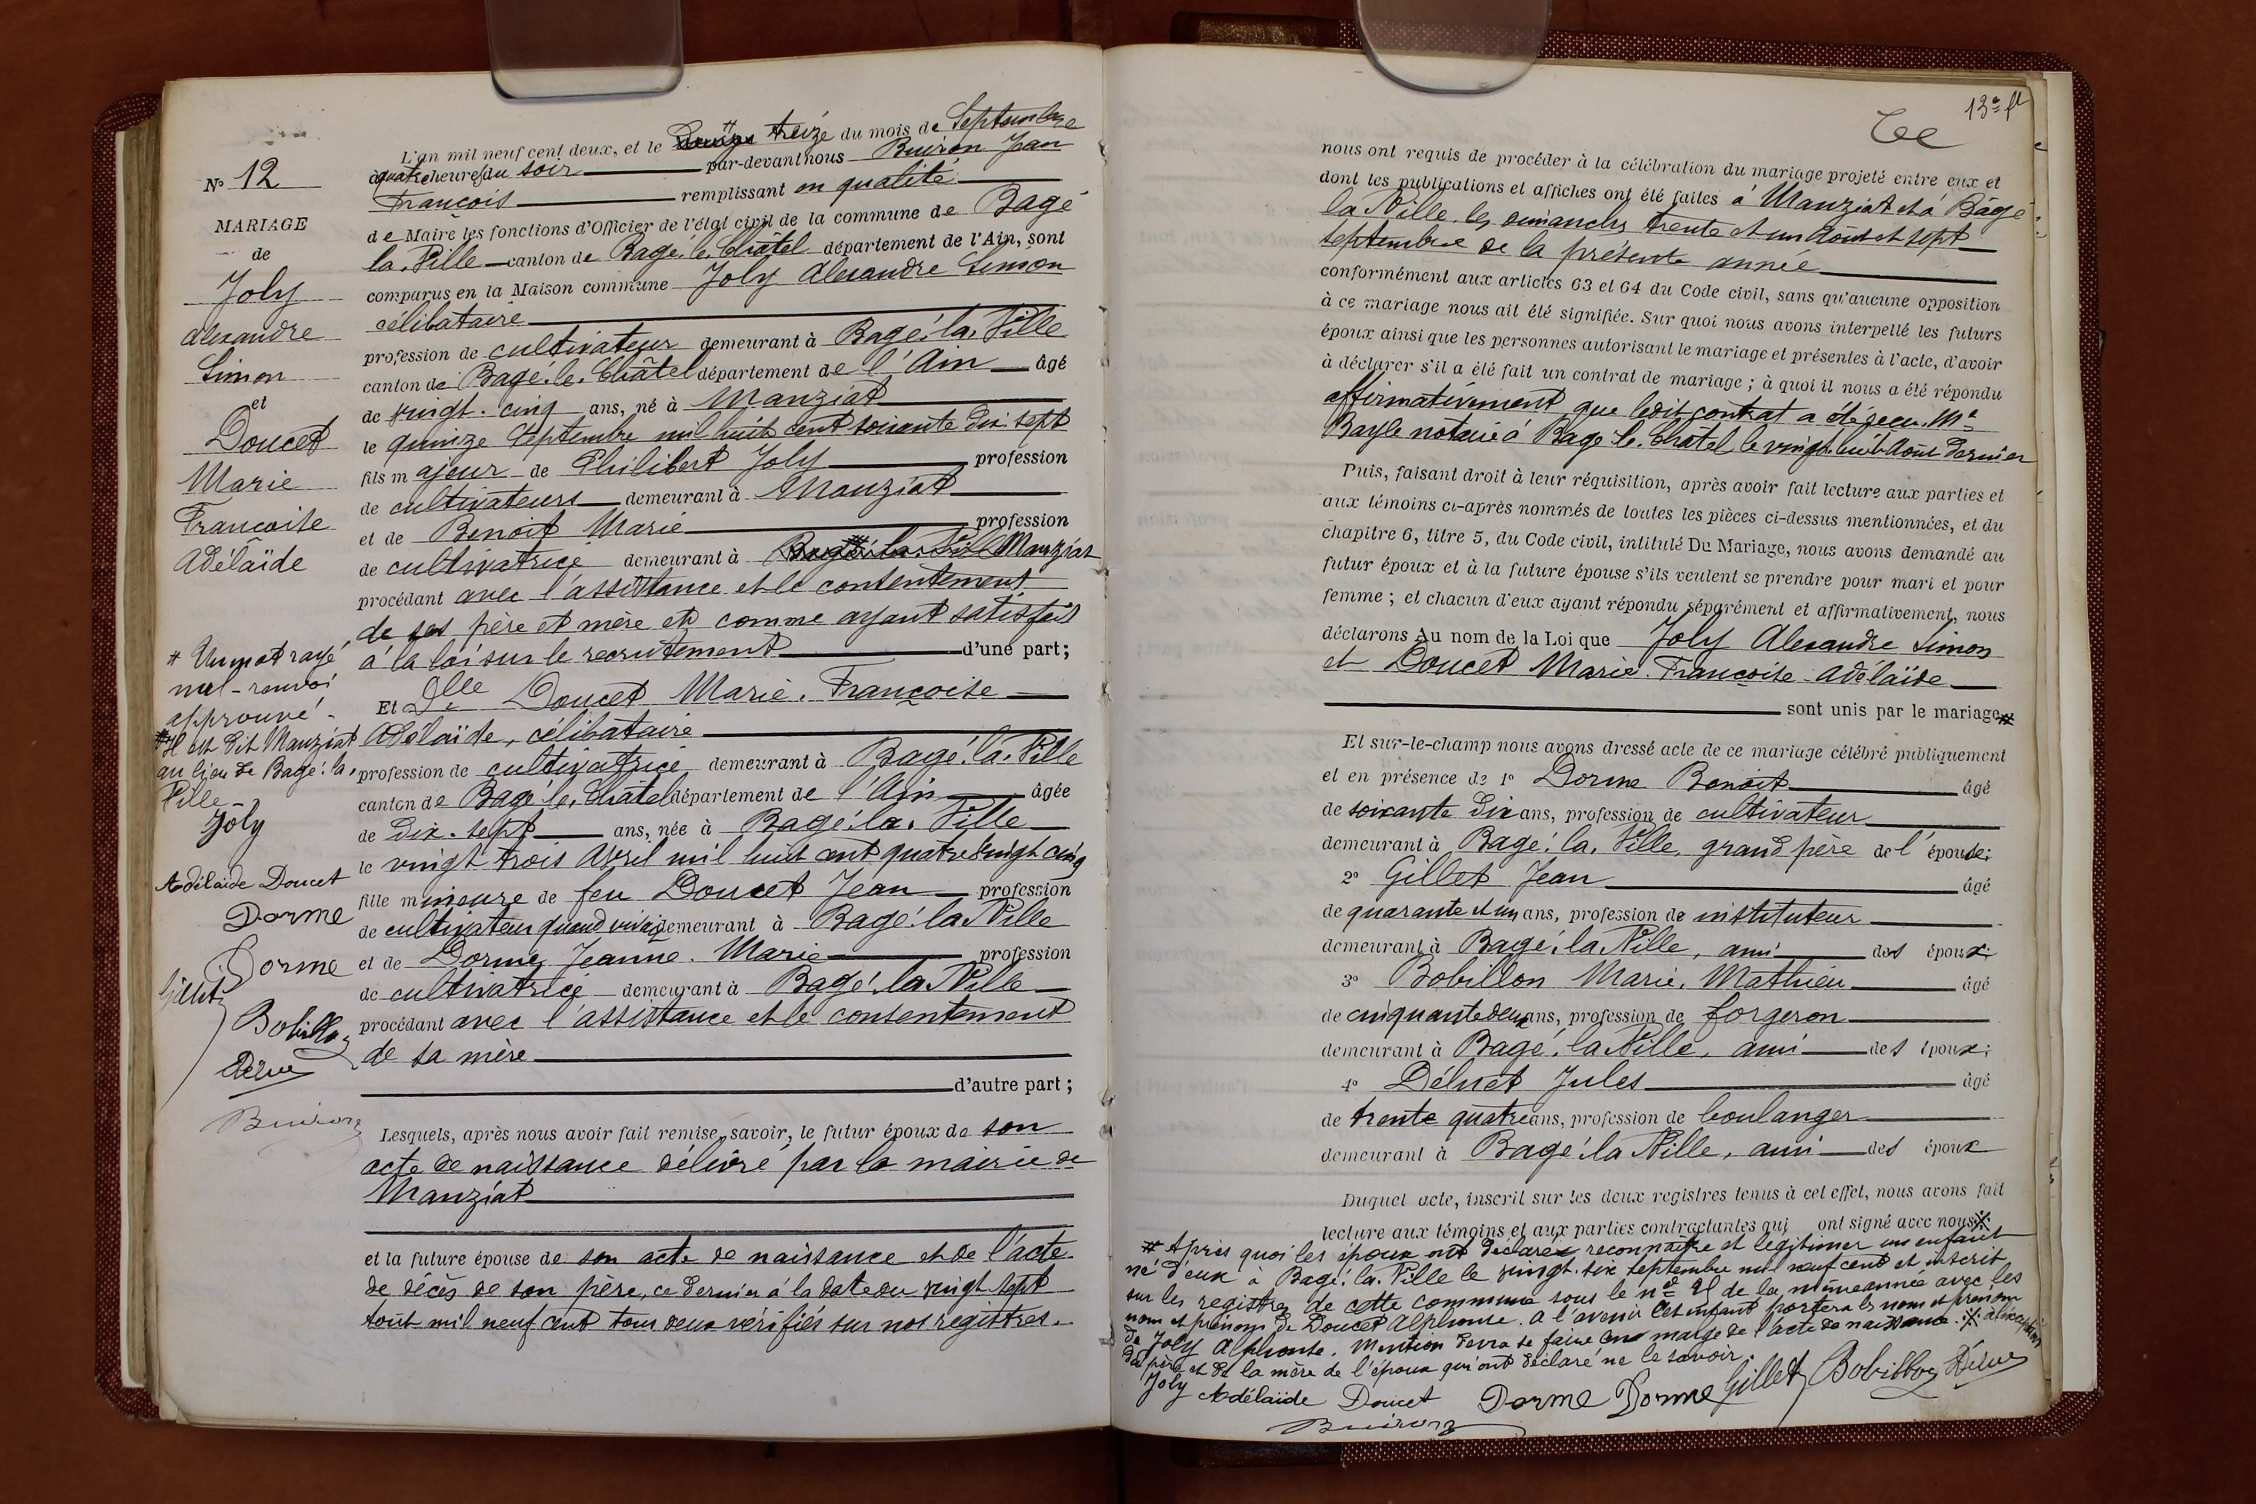 L'an mil neuf cent deux, et le Douze treize du mois de Septembre
à quatre heures du soir par-devant nous Buiron Jean
François remplissant en qualité
de Maire les fonctions d'Officier de l'état civil de la commune de Bagé
la Ville canton de Bagé-le-Châtel département de l'Ain, sont
comparus en la Maison commune Joly Alexandre Simon
célibataire
profession de cultivateur demeurant à Bagé-la-Ville
canton de Bagé-le-Châtel département de l'Ain âgé
de vingt-cinq ans, né à Manziat
le quinze Septembre mil huit cent soixante dix-sept
fils majeur de Philibert Joly profession
de cultivateurs demeurant à Manziat
et de Benoit Marie profession
de cultivatrice demeurant à Bagé-la-Ville Manziat
procédant avec l'assistance et le consentement
de ses père et mère et comme ayant satisfait
à la loi sur le recrutement d'une part;
Et Dlle Doucet Marie-Françoise
Adélaïde, célibataire
profession de cultivatrice demeurant à Bagé-la-Ville
canton de Bagé-le-Châtel département de l'Ain âgée
de dix-sept ans, née à Bagé-la-Ville
le vingt trois Avril mil huit cent quatre vingt cinq
fille mineure de feu Doucet Jean profession
de cultivateur quand vivait demeurant à Bagé-la-Ville
et de Dorme Jeanne-Marie profession
de cultivatrice demeurant à Bagé-la-Ville
procédant avec l'assistance et le consentement
de sa mère
d'autre part;
Lesquels, après nous avoir fait remise, savoir, le futur époux de son
acte de naissance délivré par la mairie de
Manziat
et la future épouse de son acte de naissance et de l'acte
de décès de son père, ce dernier à la date du vingt sept
août mil neuf cent tous deux vérifiés sur nos registres.
N° 12
MARIAGE
de
Joly
Alexandre
Simon
et
Doucet
Marie
Françoise
Adélaïde
# Un mot rayé
nul - renvoi
approuvé -
# Il est dit Manziat
au lieu de Bagé-la-
Ville -
Joly
Adélaïde Doucet
Dorme
Dorme
Gillet
Bobillon
Déluet
Buiron
13e ft
nous ont requis de procéder à la célébration du mariage projeté entre eux et
dont les publications et affiches ont été faites à Manziat et à Bagé
la Ville, les dimanches trente et un Août et sept
septembre de la présente année
conformément aux articles 63 et 64 du Code civil, sans qu'aucune opposition
à ce mariage nous ait été signifiée. Sur quoi nous avons interpellé les futurs
époux ainsi que les personnes autorisant le mariage et présentes à l'acte, d'avoir
à déclarer s'il a été fait un contrat de mariage; à quoi il nous a été répondu
affirmativement que ledit contrat a été reçu Me
Bayle notaire à Bagé-le-Châtel le vingt-huit Août dernier
Puis, faisant droit à leur réquisition, après avoir fait lecture aux parties et
aux témoins ci-après nommés de toutes les pièces ci-dessus mentionnées, et du
chapitre 6, titre 5, du Code civil, intitulé Du Mariage, nous avons demandé au
futur époux et à la future épouse s'ils veulent se prendre pour mari et pour
femme; et chacun d'eux ayant répondu séparément et affirmativement, nous
déclarons Au nom de la Loi que Joly Alexandre Simon
et Doucet Marie-Françoise-Adélaïde
sont unis par le mariage #
Et sur-le-champ nous avons dressé acte de ce mariage célébré publiquement
et en présence de 1° Dorme Benoît âgé
de soixante dix ans, profession de cultivateur
demeurant à Bagé-la-Ville, grand père de l'épouse;
2° Gillet Jean âgé
de quarante et un ans, profession de instituteur
demeurant à Bagé-la-Ville, ami des époux;
3° Bobillon Marie-Mathieu âgé
de cinquante deux ans, profession de forgeron
demeurant à Bagé-la-Ville, ami des époux;
4° Déluet Jules âgé
de trente quatre ans, profession de boulanger
demeurant à Bagé-la-Ville, ami des époux
Duquel acte, inscrit sur les deux registres tenus à cet effet, nous avons fait
lecture aux témoins et aux parties contractantes qui ont signé avec nous
# Après quoi les époux ont déclaré reconnaître et légitimer un enfant
né d'eux à Bagé-la-Ville le vingt-six septembre mil neuf cent et inscrit
sur les registres de cette commune sous le n° 21 de la même année avec les
nom et prénom de Doucet Alphonse. A l'avenir cet enfant portera les nom et prénom
de Joly Alphonse. Mention devra se faire en marge de l'acte de naissance. à l'exception
du père et de la mère de l'époux qui ont déclaré ne le savoir.
Joly Adélaïde Doucet Dorme Dorme Gillet Bobillon Déluet
Buiron